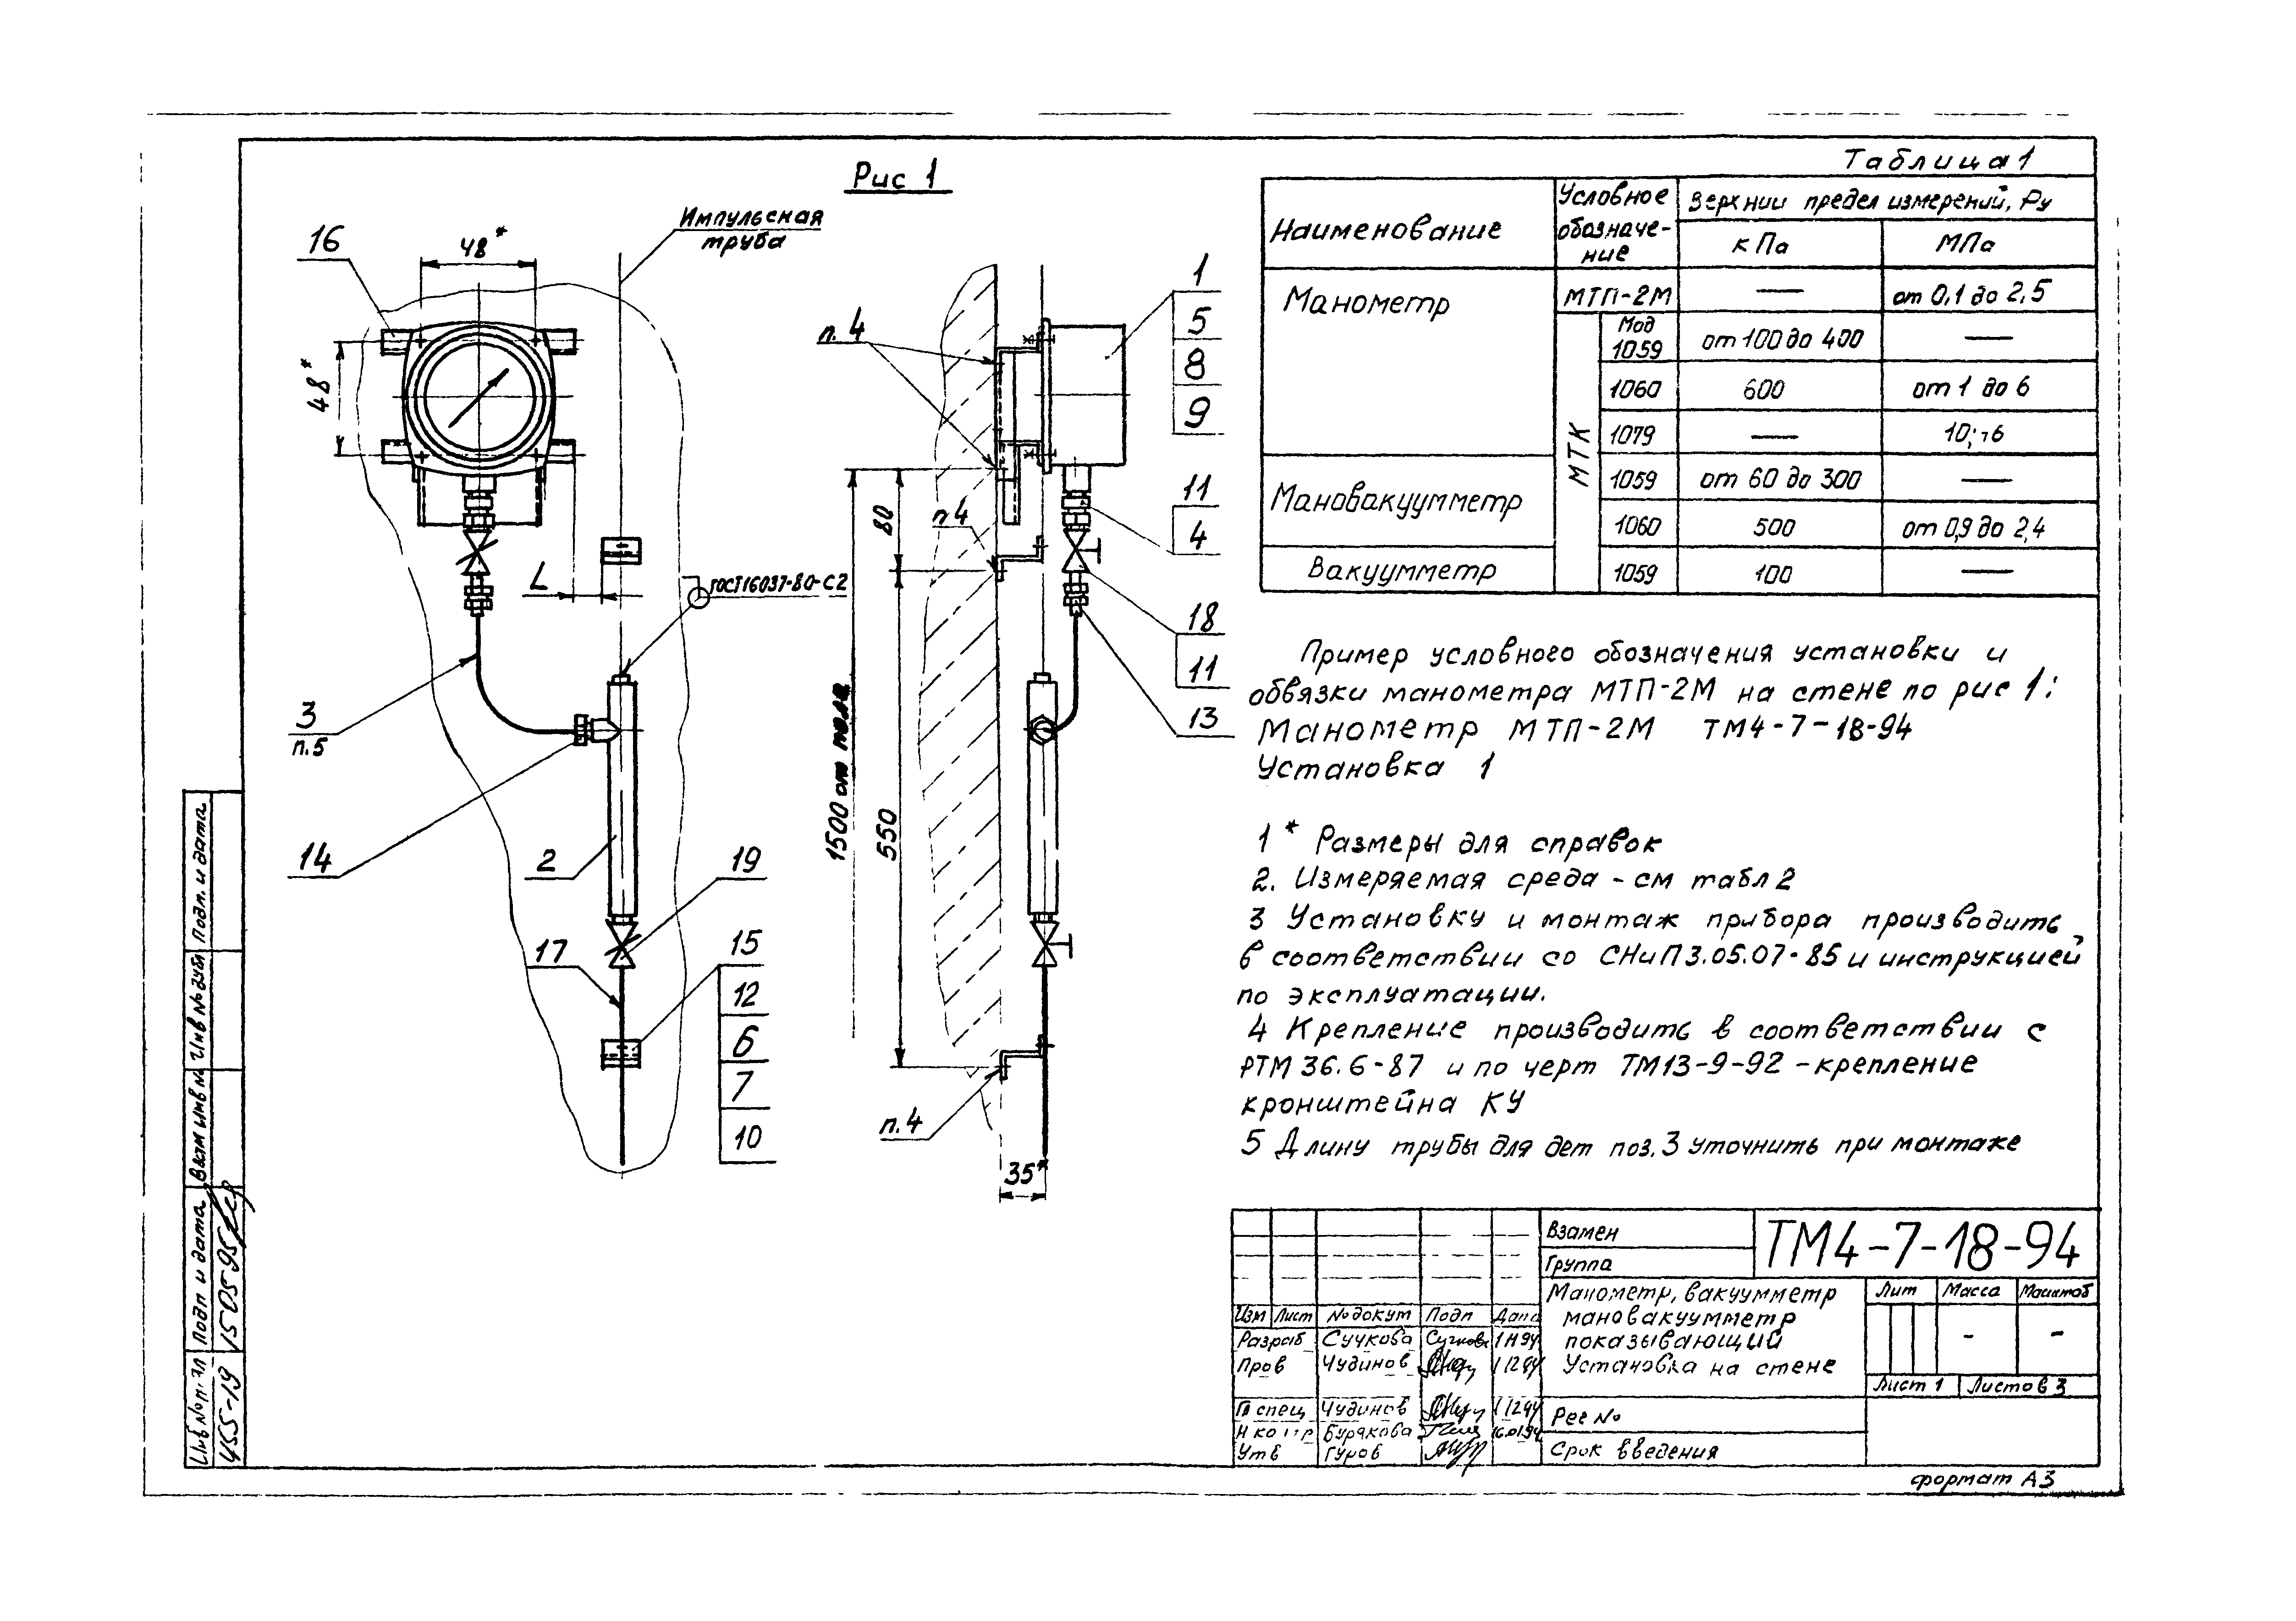 Рис 1
Импульсная
труба
16
48*
48*
L
ГОСТ 16037-80-С2
3
п.5
14
2
19
17
15
12
6
7
10
п.4
1
5
8
9
11
4
80
п 4
18
11
13
1500 от пола
550
п.4
35*
Таблица 1
Наименование
Условное
обозначе-
ние
Верхнии предел измерений, Ру
кПа
МПа
Манометр
МТП-2М — от 0,1 до 2,5
МТК
Мод
1059 от 100 до 400 —
1060 600 от 1 до 6
1079 —
Мановакуумметр
1059 от 60 до 300 —
1060 500 от 0,9 до 2,4
Вакуумметр 1059 100 —
Пример условного обозначения установки и
обвязки манометра МТП-2М на стене по рис 1:
Манометр МТП-2М ТМ4-7-18-94
Установка 1
1 * Размеры для справок
2. Измеряемая среда - см табл 2
3 Установку и монтаж прибора производить
в соответствии со СНиП 3.05.07-85 и инструкцией
по эксплуатации.
4 Крепление производить в соответствии с
РТМ 36.6-87 и по черт ТМ13-9-92 - крепление
кронштейна КУ
5 Длину трубы для дет поз. 3 уточнить при монтаже
Взамен
Группа
ТМ4-7-18-94
Манометр, вакуумметр
мановакуумметр
показывающий
Установка на стене
Лит Масса Масштаб
- -
Лист 1 Листов 3
Изм Лист № докум Подп Дата
Разраб Сучкова
Пров Чудинов
Гл спец Чудинов
Н контр Бурякова
Утв Гуров
Рег №
Срок введения
формат А3
Подп. и дата
Инв № дубл
Взам инв №
Подп и дата
150595
Инв № подл
455-19